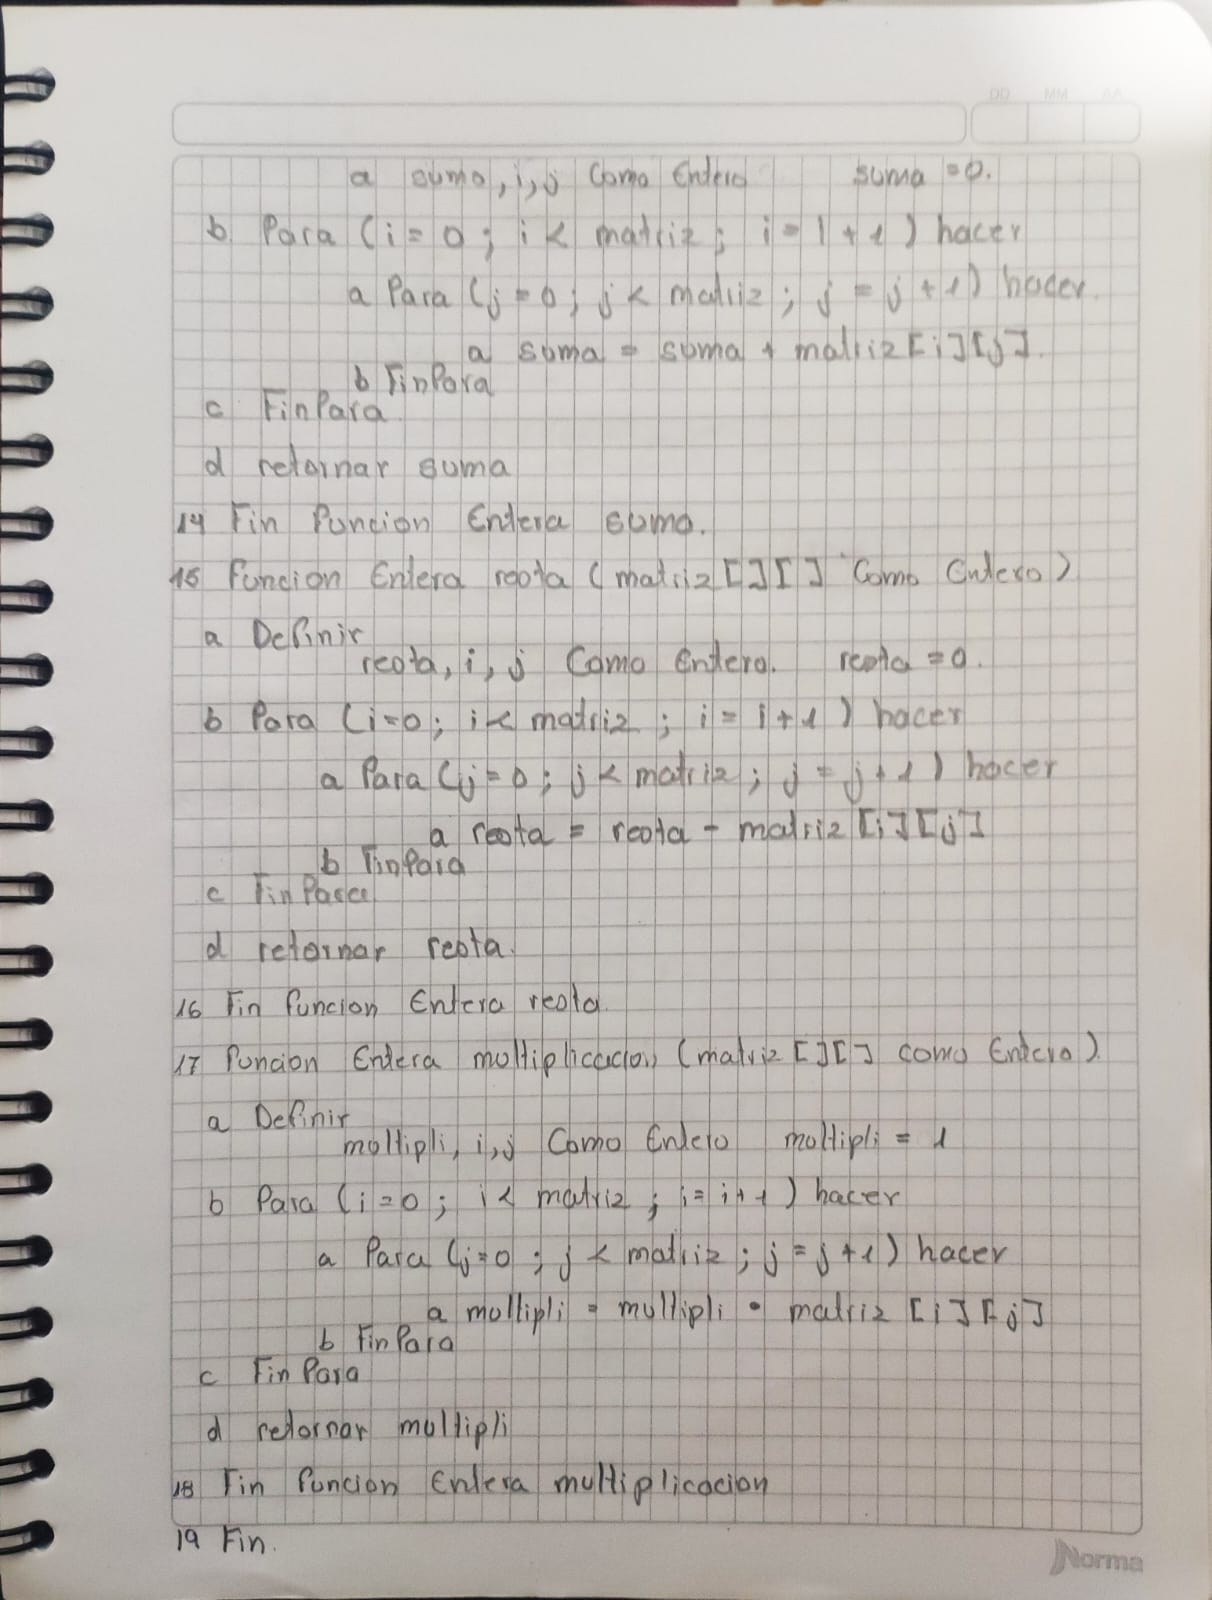 DD MM AA
a suma, i, j Como Entero suma = 0.
b Para (i = 0 ; i < matriz ; i = i + 1 ) hacer
a Para (j = 0 ; j < matriz ; j = j + 1) hacer.
a suma = suma + matriz [i][j].
b FinPara
c FinPara.
d retornar suma
14 Fin Funcion Entera suma.
15 Funcion Entera resta ( matriz [ ] [ ] Como Entero )
a Definir
resta, i, j Como Entero. resta = 0.
b Para (i=0; i< matriz ; i = i+1 ) hacer
a Para (j = 0 ; j < matriz ; j = j + 1 ) hacer
a resta = resta - matriz [i] [j]
b FinPara
c FinPara
d retornar resta.
16 Fin funcion Entera resta.
17 Funcion Entera multiplicacion (matriz [ ] [ ] como Entero ).
a Definir
multipli, i, j Como Entero multipli = 1
b Para (i = 0 ; i < matriz ; i = i + 1 ) hacer
a Para (j=0 ; j < matriz ; j = j + 1) hacer
a multipli = multipli • matriz [i] [j]
b FinPara
c Fin Para
d retornar multipli
18 Fin funcion Entera multiplicacion
19 Fin.
Norma